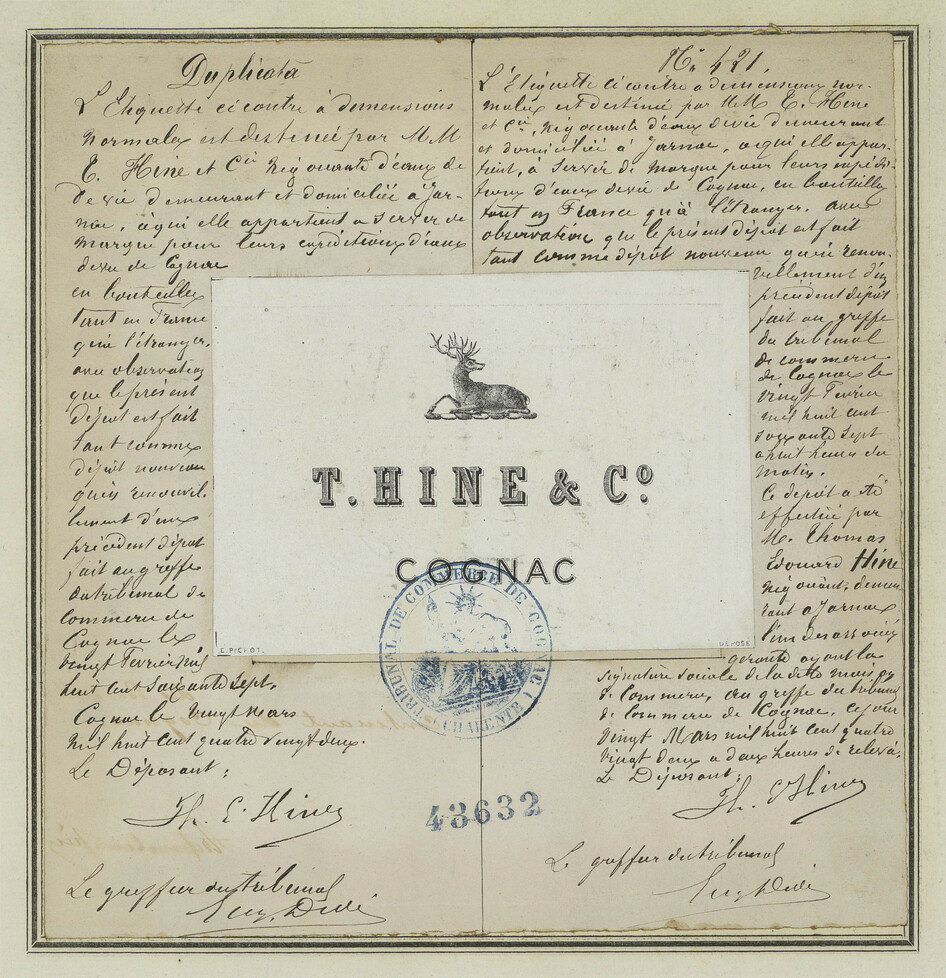 Duplicata
L'Etiquette ci contre à dimensions
normales est destinée par M.M
T. Hine et Cie Négociants d'eaux de
de vie demeurant et domiciliée à Jar-
nac, à qui elle appartient a servir de
marque pour leurs expéditions d'eaux
de vie de Cognac
en bouteilles
tant en France
qu'à l'étranger,
avec observation
que le présent
dépôt est fait
tant comme
dépôt nouveau
qu'en renouvel-
lement d'un
précédent dépot
fait au greffe
du tribunal de
commerce de
Cognac le
vingt Fevrier mil
huit cent soixante sept.
Cognac le vingt Mars
mil huit cent quatre vingt deux.
Le Déposant:
Th. E. Hine
Le greffier du tribunal
No 421.
L'Etiquette ci contre a dimensions nor-
males est destiné par M.M T. Hine
et Cie, Négociants d'eaux de vie demeurant
et domiciliés à Jarnac, a qui elle appar-
tient, à servir de marque pour leurs expédi-
tions d'eaux de vie de Cognac, en bouteilles
tant en France qu'à l'étranger. avec
observation que le présent dépôt est fait
tant comme dépôt nouveau qu'en renou-
vellement d'un
précédent dépôt
fait au greffe
du tribunal
de commerce
de Cognac le
vingt Fevrier
mil huit cent
soixante sept
a huit heures du
matin.
Ce dépôt a été
effectué par
M. Thomas
Edouard Hine
Négociant, demeu
rant a Jarnac
l'un des associés
gerants ayant la
signature sociale de la dite maison
de Commerce, au greffe du tribunal
de Commerce de Cognac, ce jour
vingt Mars mil huit cent quatre
vingt deux a deux heures de relevée.
Le Déposant:
Th. E Hine
Le greffier du tribunal
T. HINE & Co
COGNAC
C. PICHOT.
DÉPOSÉ
TRIBUNAL DE COMMERCE DE COGNAC
CHARENTE
43632